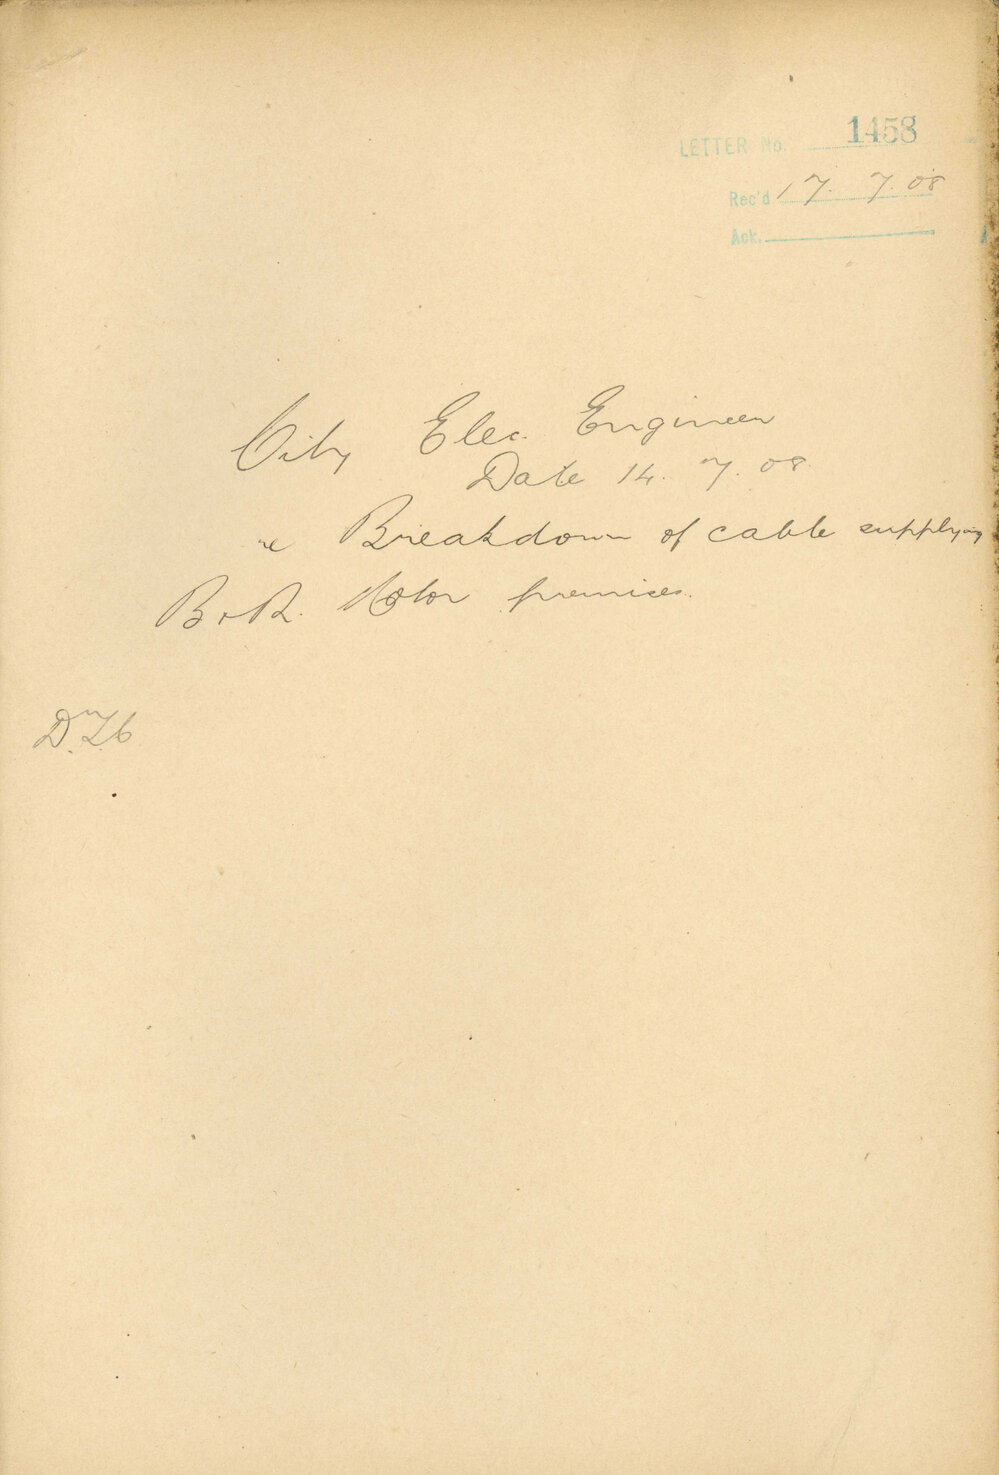 LETTER No. 1458
Rec'd 17. 7. 08
Ack.
City Elec. Engineer
Date 14. 7. 08
re Breakdown of cable supplying
B & R. Motor premises.